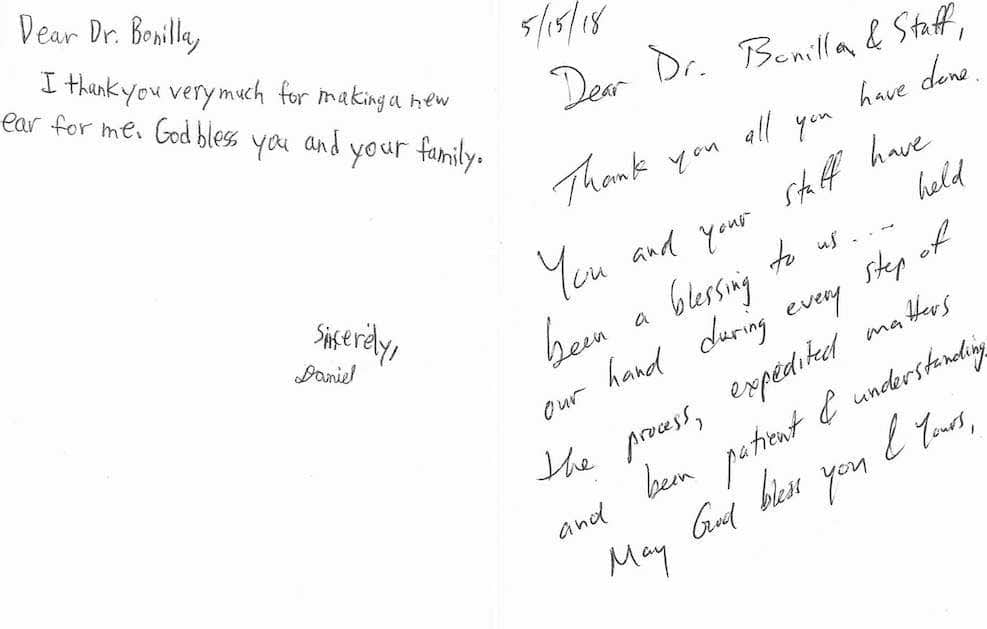 Dear Dr. Bonilla,
I thank you very much for making a new
ear for me. God bless you and your family.
Sincerely,
Daniel
5/15/18
Dear Dr. Bonilla & Staff,
Thank you all you have done.
You and your staff have
been a blessing to us... held
our hand during every step of
the process, expedited matters
and been patient & understanding.
May God bless you & Yours,